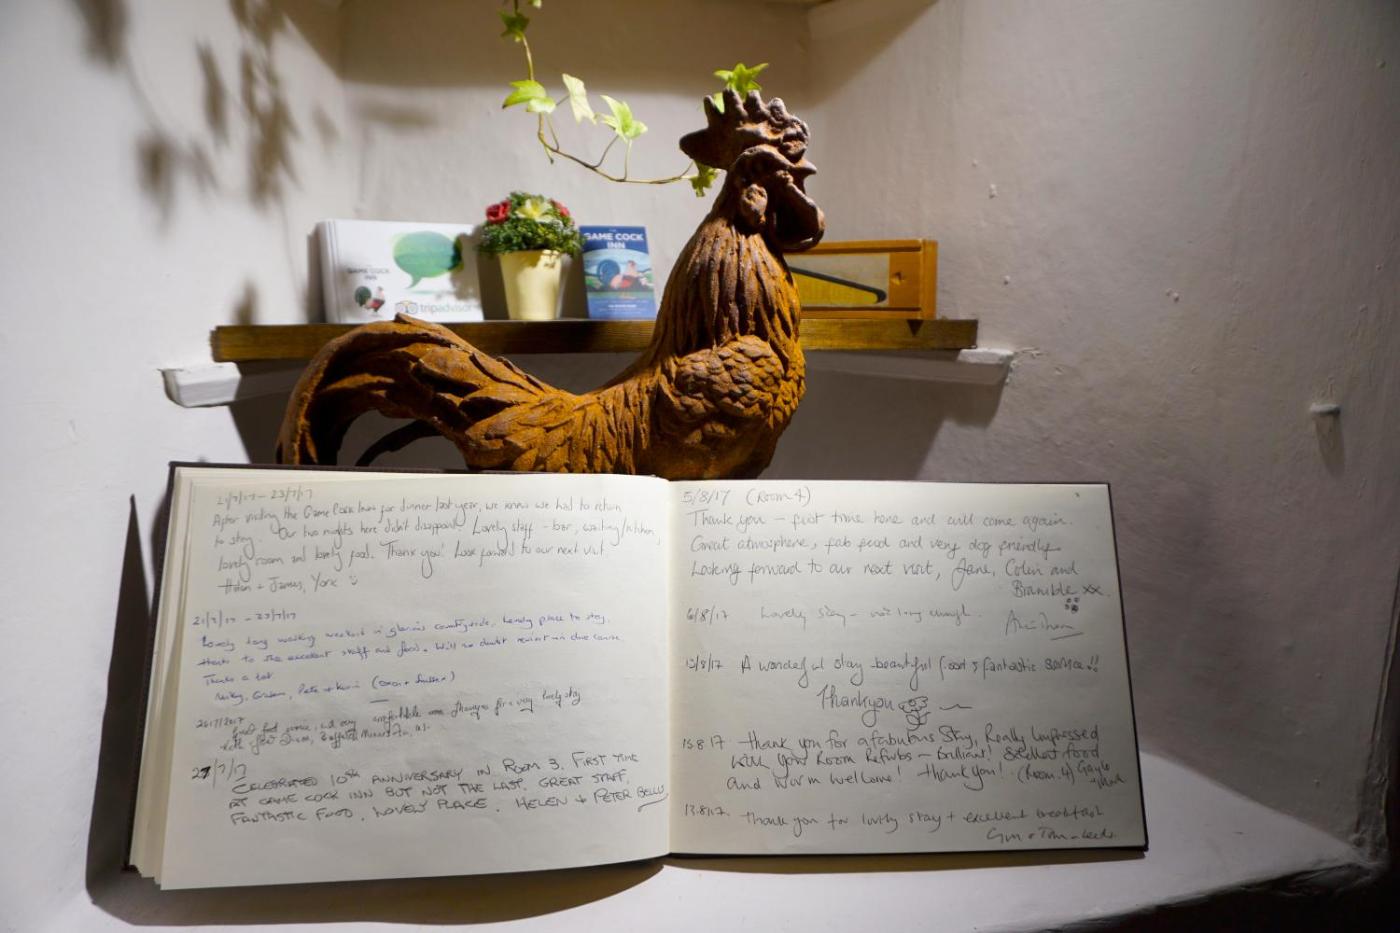 GAME COCK
INN
tripadvisor
GAME COCK
INN
21/7/17 - 23/7/17
After visiting the Game Cock Inn for dinner last year, we knew we had to return
to stay. Our two nights here didn't disappoint. Lovely staff - bar, waiting/kitchen,
lovely room and lovely food. Thank you! Look forward to our next visit.
Helen + James, York
21/7/17 - 23/7/17
Lovely long walking weekend in glorious countryside, lovely place to stay,
thanks to the excellent staff and food. Will no doubt revisit in due course
Thanks a lot
Pete +
2017
comfortable for a very lovely stay
27/7/17
CELEBRATED 10TH ANNIVERSARY IN ROOM 3. FIRST TIME
AT GAME COCK INN BUT NOT THE LAST. GREAT STAFF,
FANTASTIC FOOD, LOVELY PLACE. HELEN + PETER
5/8/17 (Room 4)
Thank you - first time here and will come again.
Great atmosphere, fab food and very dog friendly.
Looking forward to our next visit, Jane, Colin and
Bramble xx
6/8/17 Lovely stay - not long enough.
12/8/17 A wonderful stay - beautiful food & fantastic service!!
Thankyou
15.8.17 Thank you for a fabulous Stay, Really Impressed
with your Room Refurbs - Brilliant! Excellent food
and warm welcome! Thank you! (Room 4)
13.8.17. Thank you for lovely stay + excellent breakfast
+ Tom - Leeds.